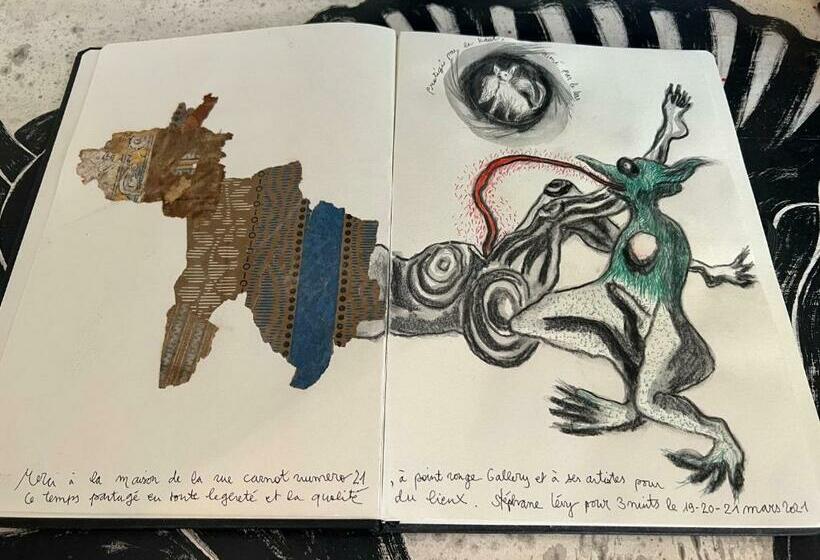 protégé par le haut, aimé par le bas
Merci à la maison de la rue carnot numero 21, à point rouge Gallery et à ses artistes pour
ce temps partagé en toute legereté et la qualité du lieux. Stéphane Lévy pour 3 nuits le 19-20-21 mars 2021